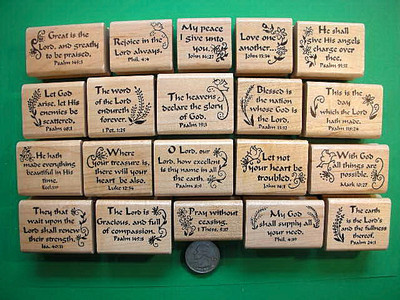 Great is the
Lord, and greatly
to be praised.
Psalm 145:3
Rejoice in the
Lord always.
Phil. 4:4
My peace
I give unto
you.
John 14:27
Love one
another...
John 13:34
He shall
give His angels
charge over
thee.
Psalm 91:11
Let God
arise, let His
enemies be
scattered.
Psalm 68:1
The word
of the Lord
endureth
forever.
1 Pet. 1:25
The heavens
declare the glory
of God.
Psalm 19:1
Blessed is
the nation
whose God is
the Lord.
Psalm 33:12
This is the
day
which the Lord
hath made.
Psalm 118:24
He hath
made everything
beautiful in His
time.
Eccl. 3:11
Where
your treasure is,
there will your
heart be also.
Luke 12:34
O Lord, our
Lord, how excellent
is thy name in all
the earth.
Psalm 8:1
Let not
your heart be
troubled.
John 14:1
With God
all things are
possible.
Mark 10:27
They that
wait upon the
Lord shall renew
their strength.
Isa. 40:31
The Lord is
Gracious, and full
of compassion.
Psalm 145:8
Pray without
ceasing.
1 Thess. 5:17
My God
shall supply all
your need.
Phil. 4:19
The earth
is the Lord's
and the fullness
thereof.
Psalm 24:1